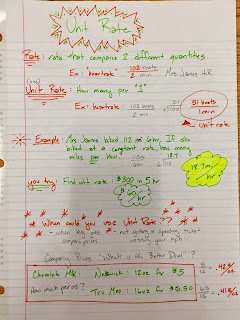 Unit Rate
Rate: ratio that compares 2 different quantities
Ex: "heartrate" 102 beats / 2 min Mrs. James' H.R.
Unit Rate: How many per "1"
Ex: heartrate 102 beats / 2 min
51 beats / 1 min
Unit Rate
Example: Mrs. James biked 112 mi in 6hr. If she
biked at a constant rate, how many
miles per hour? 112mi / 6hr 18.7
6/112
18.7mi/hr
you try: Find unit rate: $300 in 5 hr
$60/hr
When could you use Unit Rate??
- when buying
- not getting a speeding ticket
compare prices
watching your mph
Comparing Prices "What is the Better Deal"?
Chocolate Milk: Nesquick: 12oz for $5
How much per oz? Tru Moo: 16oz for $6.50